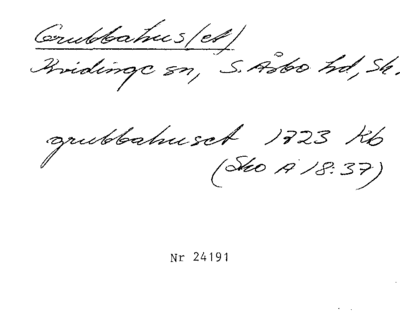 Grubbahus(et)
Kvidinge sn, S. Åsbo hd, Sk.
grubbahuset 1723 Kb
(Sko A 18:37)
Nr 24191